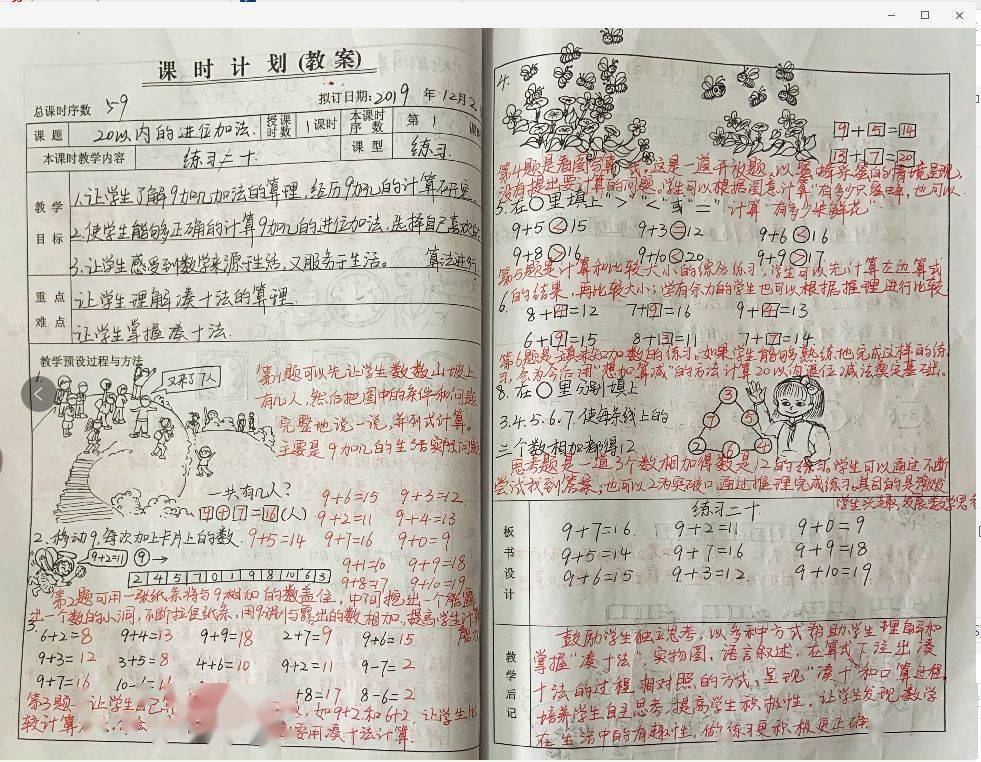 课 时 计 划 (教 案)
总课时序数 59 拟订日期:2019 年 12月2
课 题 20以内的进位加法. 授课时数 1课时 本课时序数 第 1
本课时教学内容 练习二十. 课 型 练习.
教学目标
1.让学生了解9加几加法的算理,经历9加几的计算
2.使学生能够正确的计算9加几的进位加法,选择自己喜欢的
3.让学生感受到数学来源于生活,又服务于生活。 算法进行
重点 让学生理解凑十法的算理
难点 让学生掌握凑十法.
教学预设过程与方法
1.
又来了7人
第1题可以先让学生数数山坡上
有几人,然后把图中的条件和问题
完整地说一说,并列式计算。
主要是9加几的生活实际问题
一共有几人?
9+7=16(人)
9+6=15 9+3=12
9+2=11 9+4=13
2.移动9,每次加上卡片上的数. 9+5=14 9+7=16 9+0=9
9+2=11 9→
9+1=10 9+9=18
2 4 5 7 0 1 9 8 10 6 3
9+8=17 9+10=19
第2题可用一张纸条将与9相加的数盖住,中间挖出一个能露
出一个数的小洞,不断拉住纸条,用9和与露出的数相加,提高学生计算
能力
3.
6+2=8 9+4=13 9+9=18 2+7=9 9+6=15
9+3=12 3+5=8 4+6=10 9+2=11 9-7=2
9+7=16 +8=17 8-6=2
第3题 让学生自己 如9+2和6+2,让学生比
较计算 要用凑十法计算.
4.
9+5=14
13+7=20
第4题是看图写算式,这是一道开放题,以蜜蜂采蜜的情境呈现,
没有提出要计算的问题。学生可以根据图意计算"有多少只蜜蜂,也可以
计算"有多少朵鲜花"
5.在○里填上">""<"或"="
9+5<15 9+3=12 9+6<16
9+8>16 9+10<20 9+9>17
第5题是计算和比较大小的综合练习,学生可以先计算左边算式
的结果,再比较大小;学有余力的学生也可以根据推理进行比较
6.
8+4=12 7+9=16 9+4=13
6+9=15 8+3=11 7+7=14
第6题是填未知加数的练习。如果学生能够熟练地完成这样的练
习,会为今后用"想加算减"的方法计算20以内退位减法奠定基础。
8.在○里分别填上
3.4.5.6.7.使每条线上的
三个数相加都得12
3
7 5
2 6 4
思考题是一道3个数相加得数是12的练习,学生可以通过不断
尝试找到答案;也可以2为突破口,通过推理完成练习。其目的是激发
学生兴趣,发展数学思考
板书设计
练习二十.
9+7=16. 9+2=11 9+0=9
9+5=14 9+7=16 9+9=18
9+6=15 9+3=12. 9+10=19
教学后记
鼓励学生独立思考,以多种方式帮助学生理解和
掌握"凑十法",实物图、语言叙述、在算式下注出凑
十法的过程相对照的方式,呈现"凑十"和口算过程,
培养学生自主思考,提高学生积极性。让学生发现数学
在生活中的有趣性,做练习更积极更正确